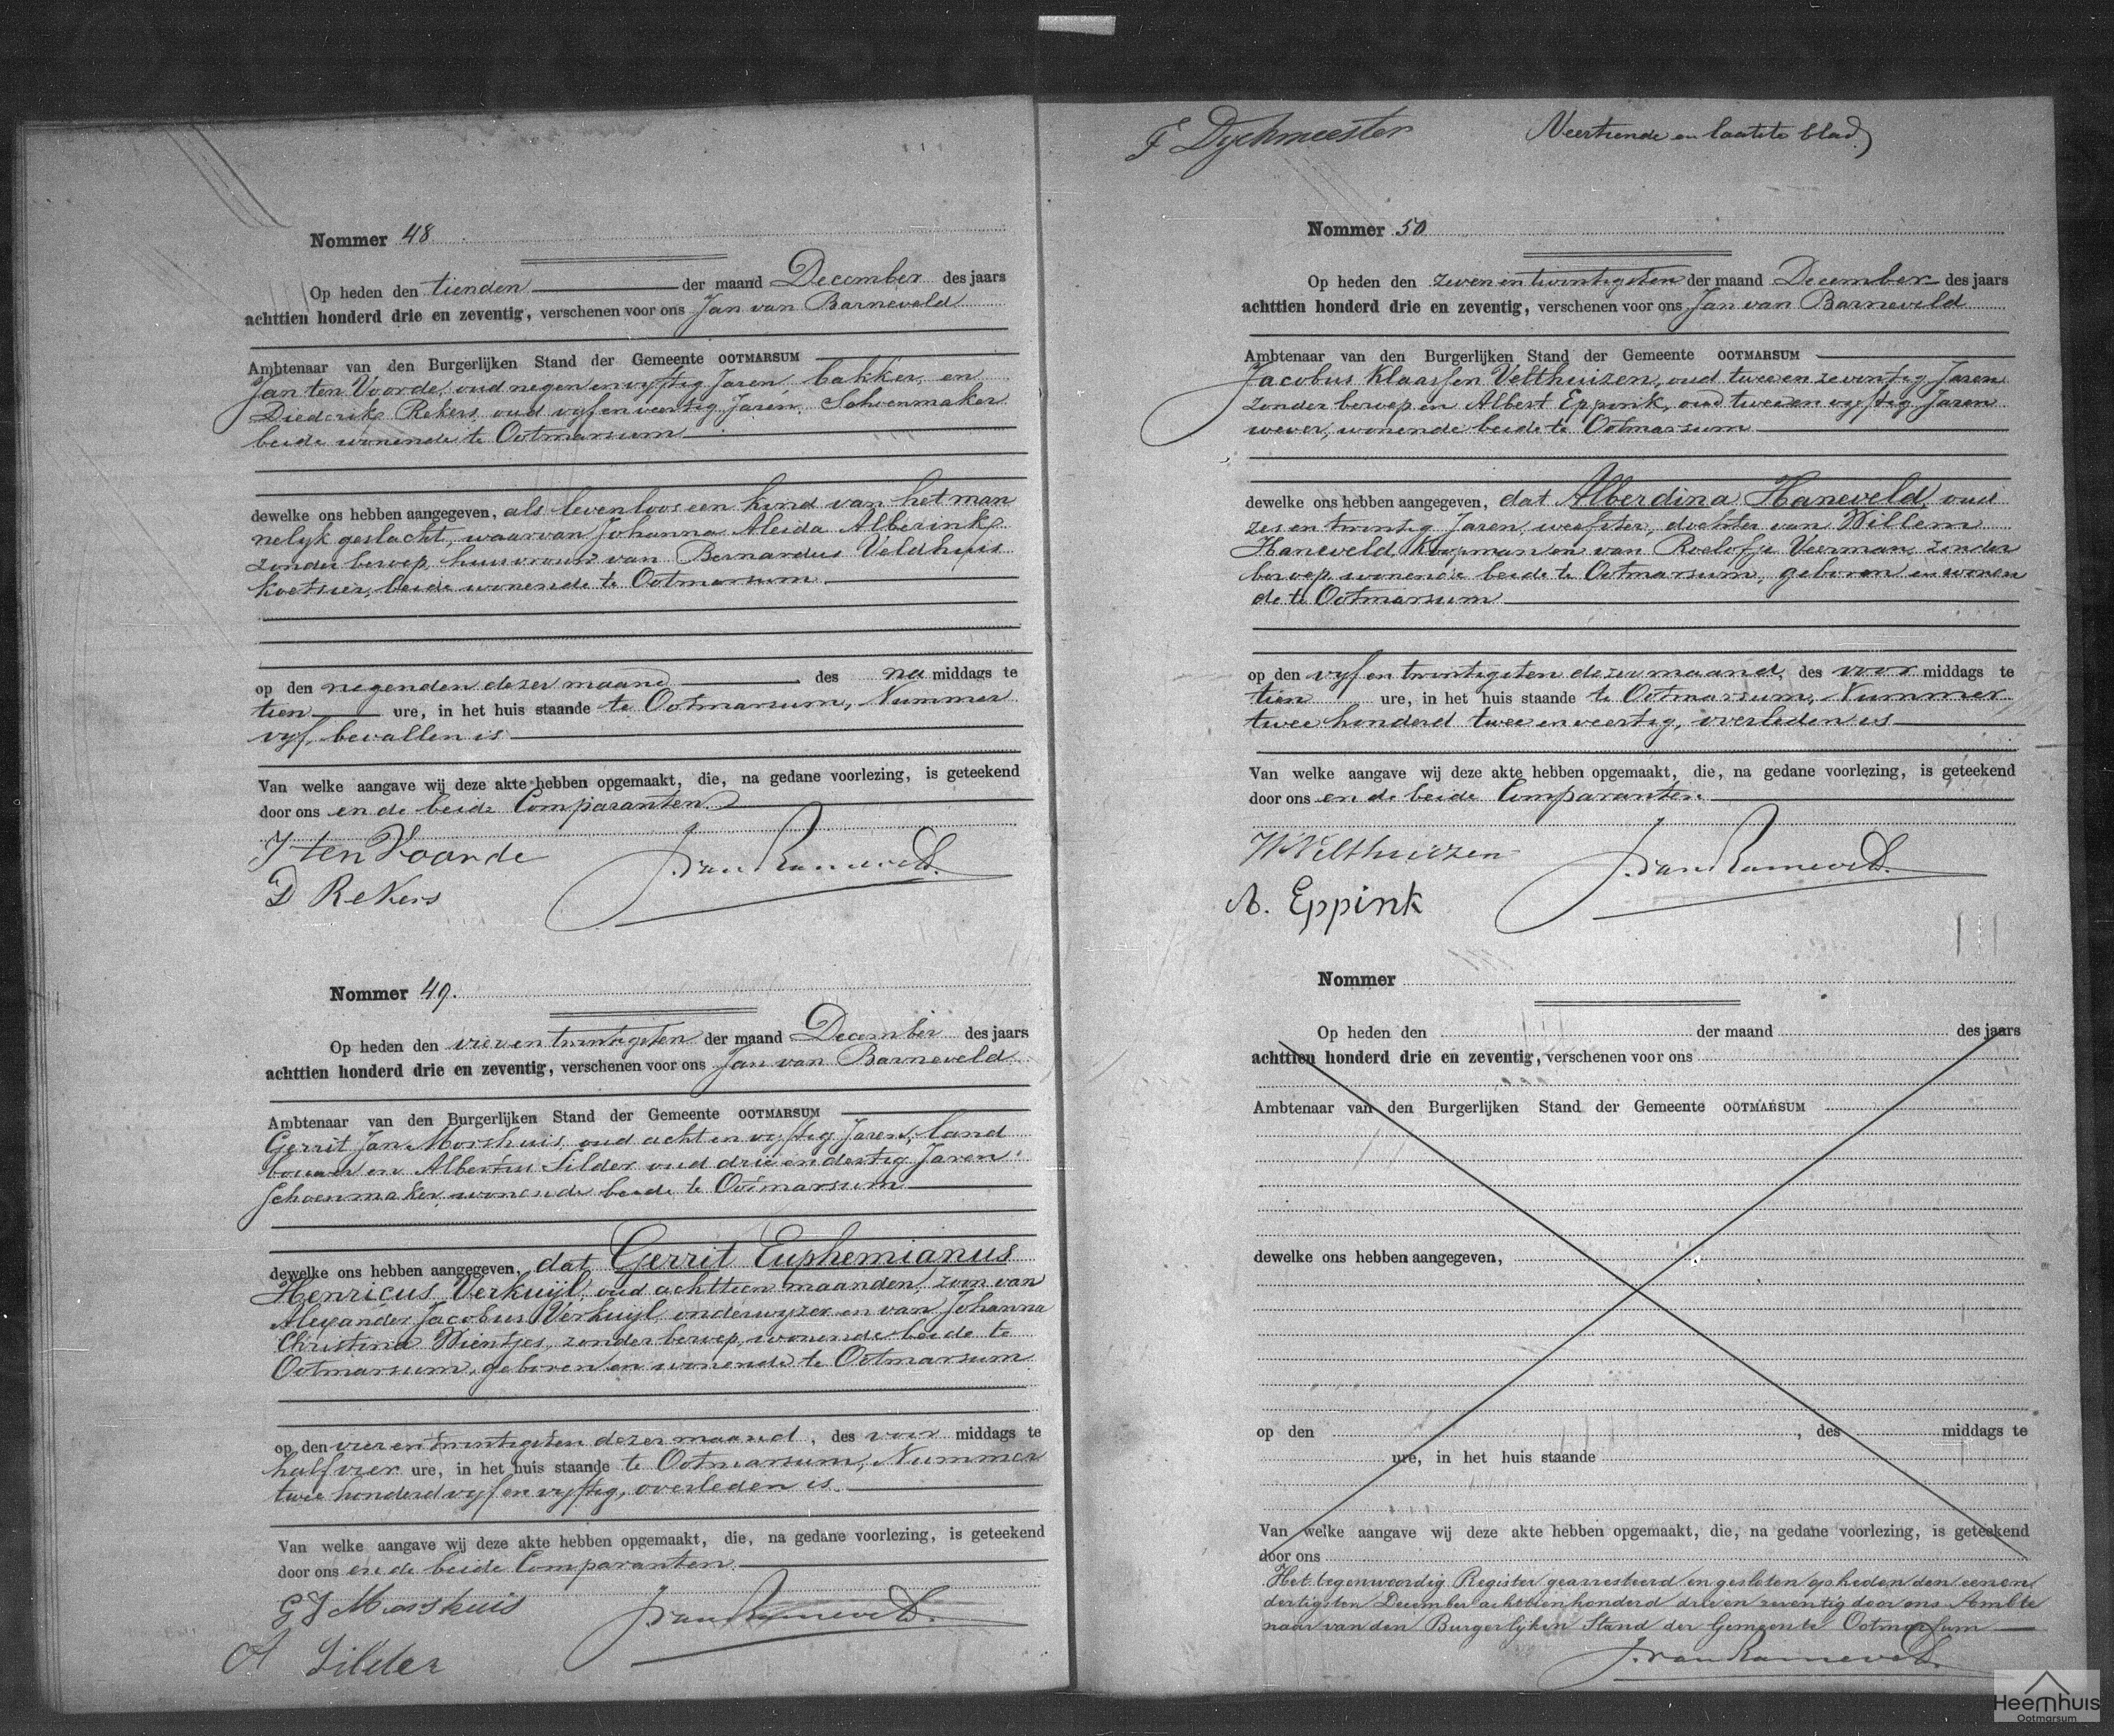 Nommer 48
Op heden den tienden der maand December des jaars
achttien honderd drie en zeventig, verschenen voor ons Jan van Barneveld
Ambtenaar van den Burgerlijken Stand der Gemeente OOTMARSUM
Jan ten Voorde, oud negen en vyftig Jaren, bakker, en
Diederik Rekers, oud vyf en veertig Jaren, Schoenmaker
beide wonende te Ootmarsum
dewelke ons hebben aangegeven, als levenloos een kind van het man
nelyk geslacht, waarvan Johanna Aleida Alberink,
zonder beroep, huisvrouw van Bernardus Veldhuis
koetsier, beide wonende te Ootmarsum
op den negenden dezer maand des na middags te
tien ure, in het huis staande te Ootmarsum, Nummer
vyf, bevallen is
Van welke aangave wij deze akte hebben opgemaakt, die, na gedane voorlezing, is geteekend
door ons en de beide Comparanten.
J ten Voorde
J. van Barneveld.
D Rekers
Nommer 49.
Op heden den vier en twintigsten der maand December des jaars
achttien honderd drie en zeventig, verschenen voor ons Jan van Barneveld
Ambtenaar van den Burgerlijken Stand der Gemeente OOTMARSUM
Gerrit Jan Morshuis, oud acht en vyftig Jaren, land
bouwer en Albertus Silder oud drie en dertig Jaren
Schoenmaker, wonende beide te Ootmarsum
dewelke ons hebben aangegeven, dat Gerrit Euphemianus
Henricus Verkuijl, oud achttien maanden, zoon van
Alexander Jacobus Verkuijl, onderwyzer en van Johanna
Christina Wientjes, zonder beroep, wonende beide te
Ootmarsum, geboren en wonende te Ootmarsum
op den vier en twintigsten dezer maand, des voor middags te
half vier ure, in het huis staande te Ootmarsum, Nummer
twee honderd vyf en vyftig, overleden is.
Van welke aangave wij deze akte hebben opgemaakt, die, na gedane voorlezing, is geteekend
door ons en de beide Comparanten.
G J Morshuis
J. van Barneveld.
A Silder
F Dyckmeester
Veertiende en laatste blad
Nommer 50
Op heden den zeven en twintigsten der maand December des jaars
achttien honderd drie en zeventig, verschenen voor ons Jan van Barneveld
Ambtenaar van den Burgerlijken Stand der Gemeente OOTMARSUM
Jacobus Klaassen Velthuizen, oud twee en zeventig Jaren
zonder beroep en Albert Eppink, oud twee en vyftig Jaren
wever, wonende beide te Ootmarsum
dewelke ons hebben aangegeven, dat Alberdina Haneveld, oud
zes en twintig Jaren, weefster, dochter van Willem
Haneveld Koopman en van Roelofje Veerman, zonder
beroep, wonende beide te Ootmarsum, geboren en wonen
de te Ootmarsum
op den vyf en twintigsten dezer maand, des voor middags te
tien ure, in het huis staande te Ootmarsum, Nummer
twee honderd twee en veertig, overleden is
Van welke aangave wij deze akte hebben opgemaakt, die, na gedane voorlezing, is geteekend
door ons en de beide Comparanten
Velthuizen
J. van Barneveld.
A. Eppink
Nommer
Op heden den der maand des jaars
achttien honderd drie en zeventig, verschenen voor ons
Ambtenaar van den Burgerlijken Stand der Gemeente OOTMARSUM
dewelke ons hebben aangegeven,
op den , des middags te
ure, in het huis staande
Van welke aangave wij deze akte hebben opgemaakt, die, na gedane voorlezing, is geteekend
door ons
Het tegenwoordig Register gearresteerd en gesloten op heden den een en
dertigsten December achttienhonderd drie en zeventig door ons Ambte
naar van den Burgerlijken Stand der Gemeente Ootmarsum
J. van Barneveld.
Heemhuis
Ootmarsum